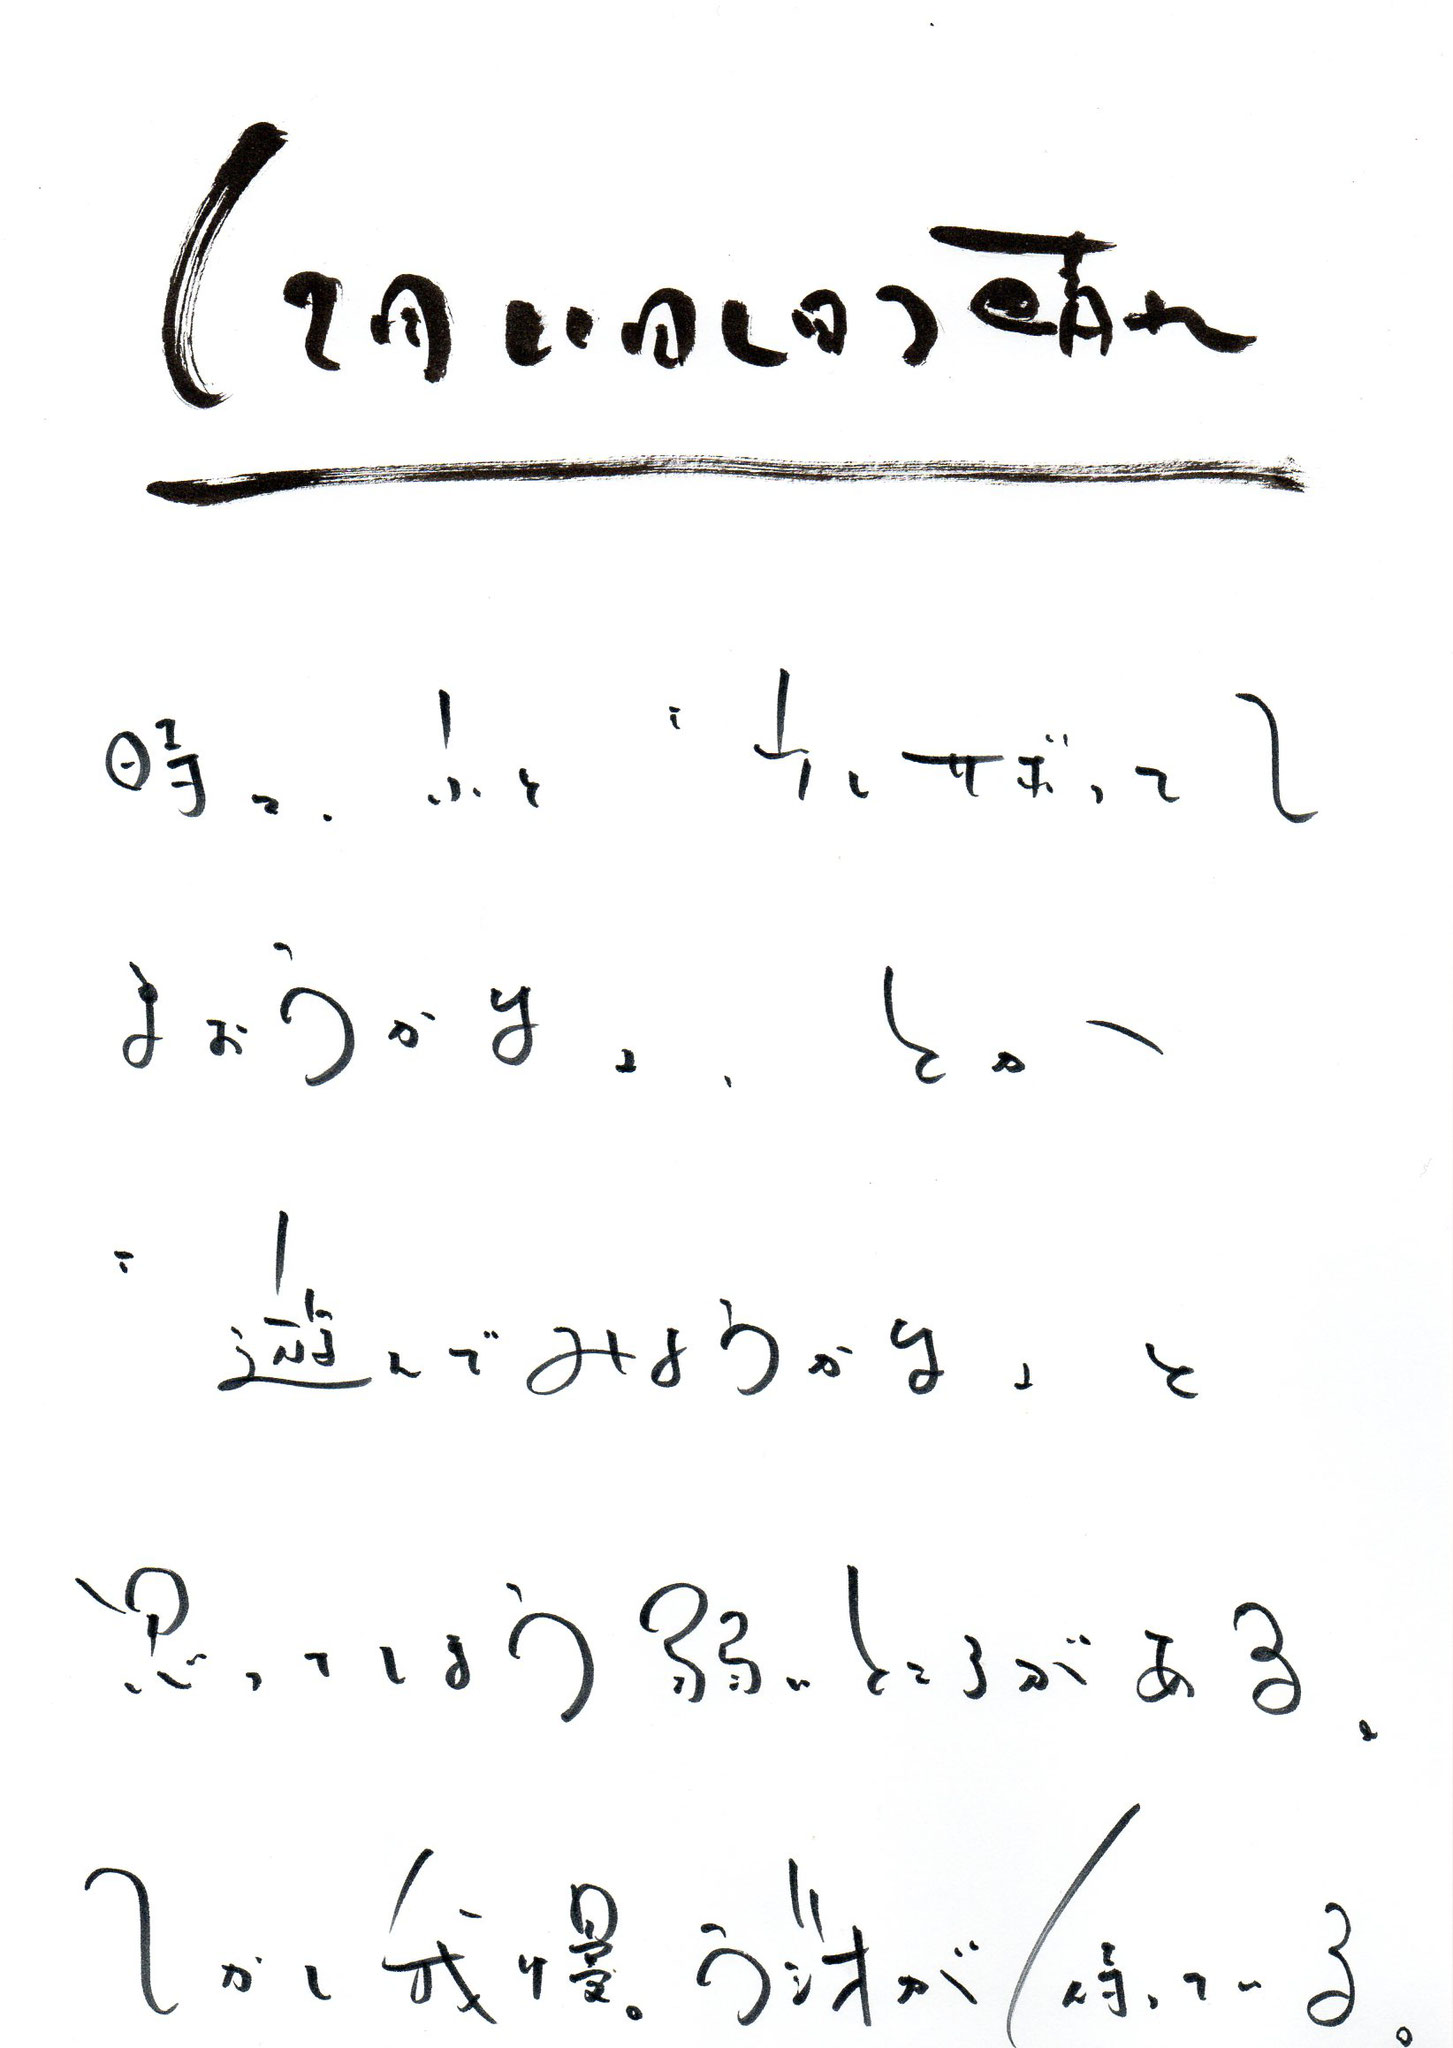 2月11日(日)晴れ
時々、ふと「少しサボって
まおうかな」、とか
「遊んでみようかな」と
思ってしまう弱いところがある、
しかし我慢。が待っている。